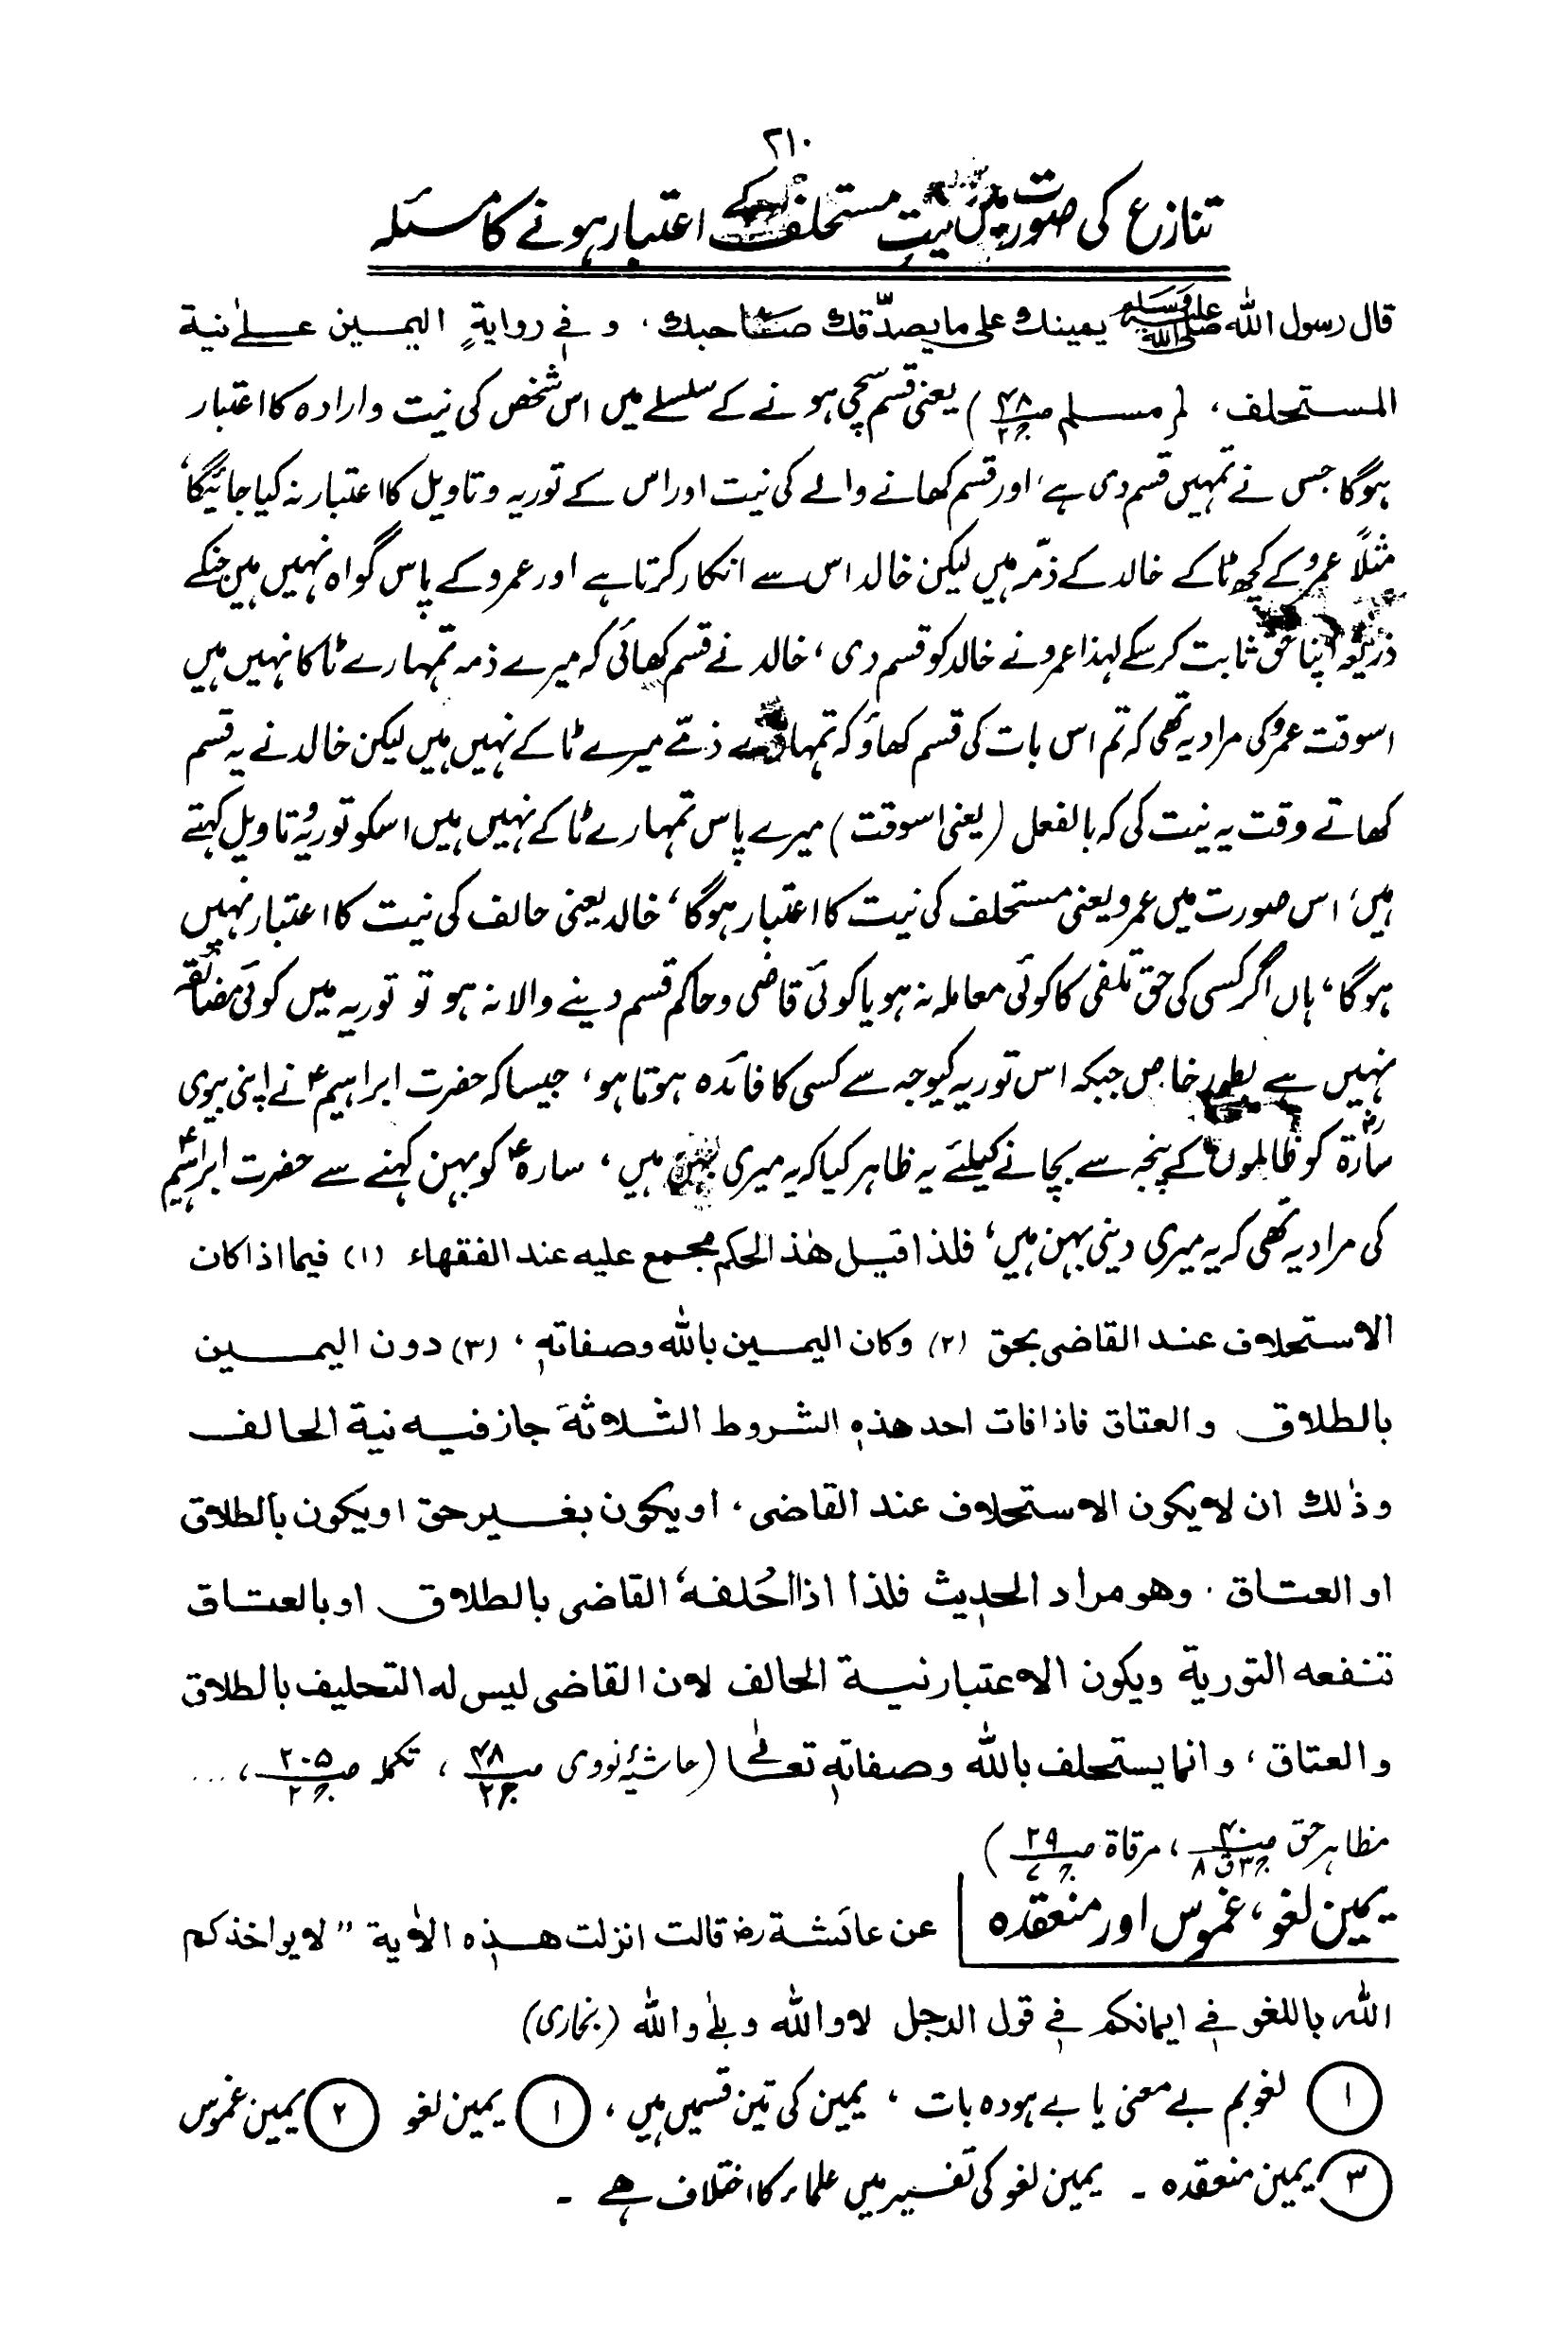 ۲۱۰
تنازع کی صورت میں نیتِ مستحلف کے اعتبار ہونے کا مسئلہ
قال رسول اللہ صلی اللہ علیہ وسلم یمینك علی ما یصدّقك صاحبك ، و فی روایةٍ الیمین علیٰ نیة
المستحلف، (مسلم صـ۴۸ جـ۲) یعنی قسم سچی ہونے کے سلسلے میں اس شخص کی نیت وارادہ کا اعتبار
ہوگا جس نے تمہیں قسم دی ہے، اور قسم کھانے والے کی نیت اور اس کے توریہ وتاویل کا اعتبار نہ کیا جائیگا،
مثلاً عمرو کے کچھ ٹاکے خالد کے ذمّہ ہیں لیکن خالد اس سے انکار کرتا ہے اور عمرو کے پاس گواہ نہیں ہیں جنکے
ذریعہ اپنا حق ثابت کرسکے لہذا عمرو نے خالد کو قسم دی ، خالد نے قسم کھائی کہ میرے ذمہ تمہارے ٹاکا نہیں ہیں
اسوقت عمرو کی مراد یہ تھی کہ تم اس بات کی قسم کھاؤ کہ تمہارے ذمّے میرے ٹاکے نہیں ہیں لیکن خالد نے یہ قسم
کھاتے وقت یہ نیت کی کہ بالفعل (یعنی اسوقت) میرے پاس تمہارے ٹاکے نہیں ہیں اسکو توریہ و تاویل کہتے
ہیں، اس صورت میں عمرو یعنی مستحلف کی نیت کا اعتبار ہوگا، خالد یعنی حالف کی نیت کا اعتبار نہیں
ہوگا، ہاں اگر کسی کی حق تلفی کا کوئی معاملہ نہ ہو یا کوئی قاضی وحاکم قسم دینے والا نہ ہو تو توریہ میں کوئی مضائقہ
نہیں ہے بطور خاص جبکہ اس توریہ کیوجہ سے کسی کا فائدہ ہوتا ہو، جیسا کہ حضرت ابراہیمؑ نے اپنی بیوی
سارۃؓ کو ظالموں کے پنجہ سے بچانے کیلئے یہ ظاہر کیا کہ یہ میری بہن ہیں، سارہؑ کو بہن کہنے سے حضرت ابراہیمؑ
کی مراد یہ تھی کہ یہ میری دینی بہن ہیں، فلذا قیل هٰذ الحکم مجمع علیه عند الفقهاء (۱) فیما اذا کان
الاستحلاف عند القاضی بحق (۲) وکان الیمین باللہ وصفاته ، (۳) دون الیمین
بالطلاق والعتاق فاذا فات احد هذه الشروط الثلاثة جاز فیه نیة الحالف
وذٰلك ان لا یکون الاستحلاف عند القاضی ، او یکون بغیر حق او یکون بالطلاق
او العتاق . وهو مراد الحدیث فلذا اذا احُلفه القاضی بالطلاق او بالعتاق
تنفعه التوریة ویکون الاعتبار نیة الحالف لان القاضی لیس له التحلیف بالطلاق
والعتاق ، وانما یستحلف باللہ وصفاته تعالیٰ (حاشیۂ نووی صـ۴۸ جـ۲ ، تکملہ صـ۲۰۵ جـ۲ ، ...
مظاہر حق صـ۴۰ جـ۳ ق ۸ ، مرقاة صـ۲۹ جـ۷)
یمین لغو، غموس اور منعقدہ عن عائشة رضـ قالت انزلت هذه الاٰیة ” لا یواخذکم
اللہ باللغو فی ایمانکم فی قول الرجل لا واللہ و بلیٰ واللہ (بخاری)
۱ لغو بم بے معنی یا بے ہودہ بات ، یمین کی تین قسمیں ہیں ، ۱ یمین لغو ۲ یمین غموس
۳ یمین منعقدہ ۔ یمین لغو کی تفسیر میں علماء کا اختلاف ہے ۔